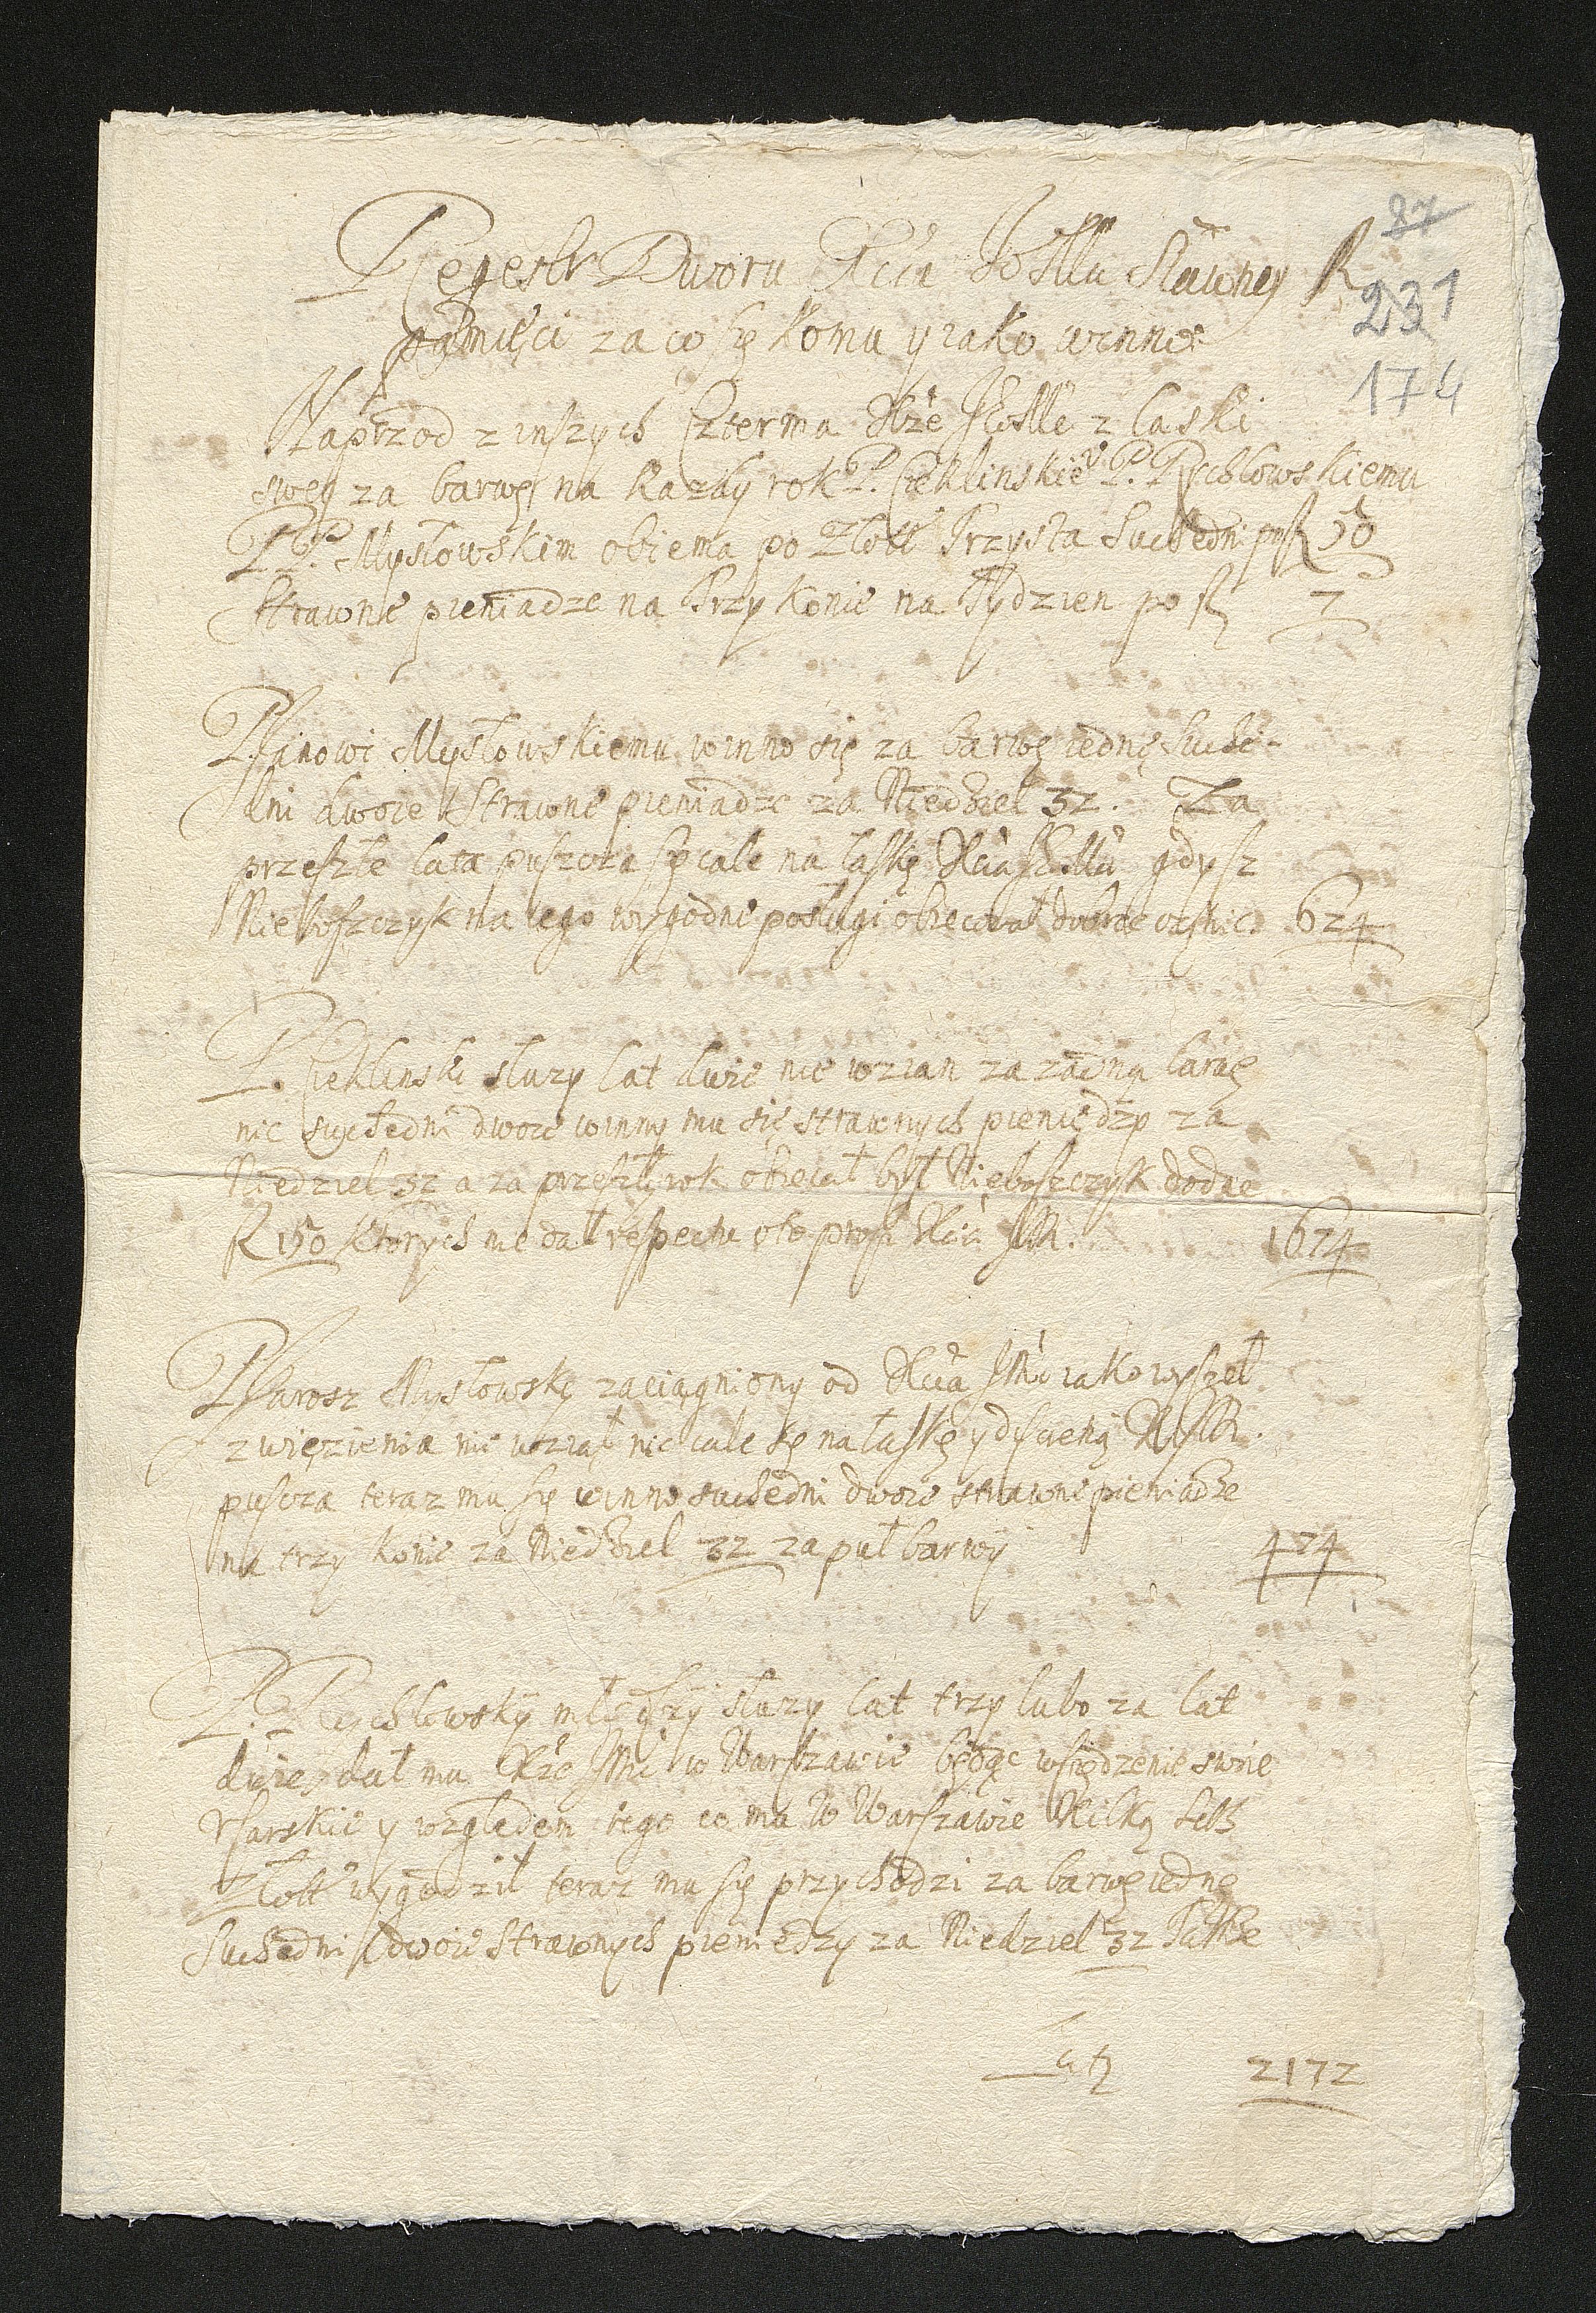 87
Regestr Dworu Xcia JoMci Sławney R
231
pamięci za co się komu y iako winno
174
Naprzod z inszych czterma Xże JEoMc z łaski
swey za barwę na kazdy rok P. Cieklinskie˅ P. Rychlowskiemu
PP. Mysłowskim obiema po Złott Trzysta Suchedni po fl 50
Strawne pieniadze na Trzy konie na Tydzien po fl 7
P. Janowi Mysłowskiemu winno się za barwę iednę Suche-
dni dwoie Strawne pieniadze za Niedziel 32. Za
przeszłe lata puszcza się cale na łaskę Xcia JEoMci gdysz
Nieboszczyk na iego wygodne posługi obiecował dobrze 624
P. Cieklinski słuzy lat dwie nie wzian za zadną barwę
nic suchedni dwoie winny mu się strawnych pieniędzy za
Niedziel 32 a za przeszły rok obiecał był Nieboszczyk dodac
fl 150 ktorych nie dał respectu oto prosi Xcia JM. 1674
P. Jarosz Mysłowsky zaciągniony od Xcia JMci iako wyszeł
z więzienia nie wziął nic cale się na łaskę y XJM.
puscza teraz mu się winno suchedni dwoie strawne pieniadze
na trzy konie za Niedziel 32 za puł barwy 474
P. Rychlowsky młodszy słuzy lat trzy lubo za lat
dwie dał mu Xże JMc w Warszawie będąc wsiędzenie swoie
Vsarskie y względem tego co mu W Warszawie kilką set
Złott wygodził teraz mu się przychodzi za barwę iednę
Suchedni dwoie Strawnych pieniedzy za Niedziel 32 Także
Latz 2172